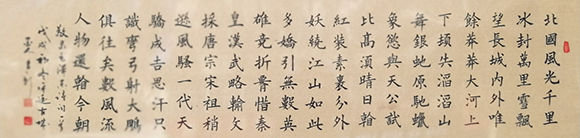 北國風光千里
冰封萬里雪飄
望長城內外唯
餘莽莽大河上
下頓失滔滔山
舞銀蛇原馳蠟
象慾與天公試
比高須晴日看
紅裝素裹分外
妖繞江山如此
多嬌引無數英
雄竞折腰惜秦
皇漢武略輸文
採唐宗宋祖稍
遜風騷一代天
驕成吉思汗只
識彎弓射大鵰
俱往矣數風流
人物還看今朝
敬录毛澤東詩詞一首
戊戌初冬